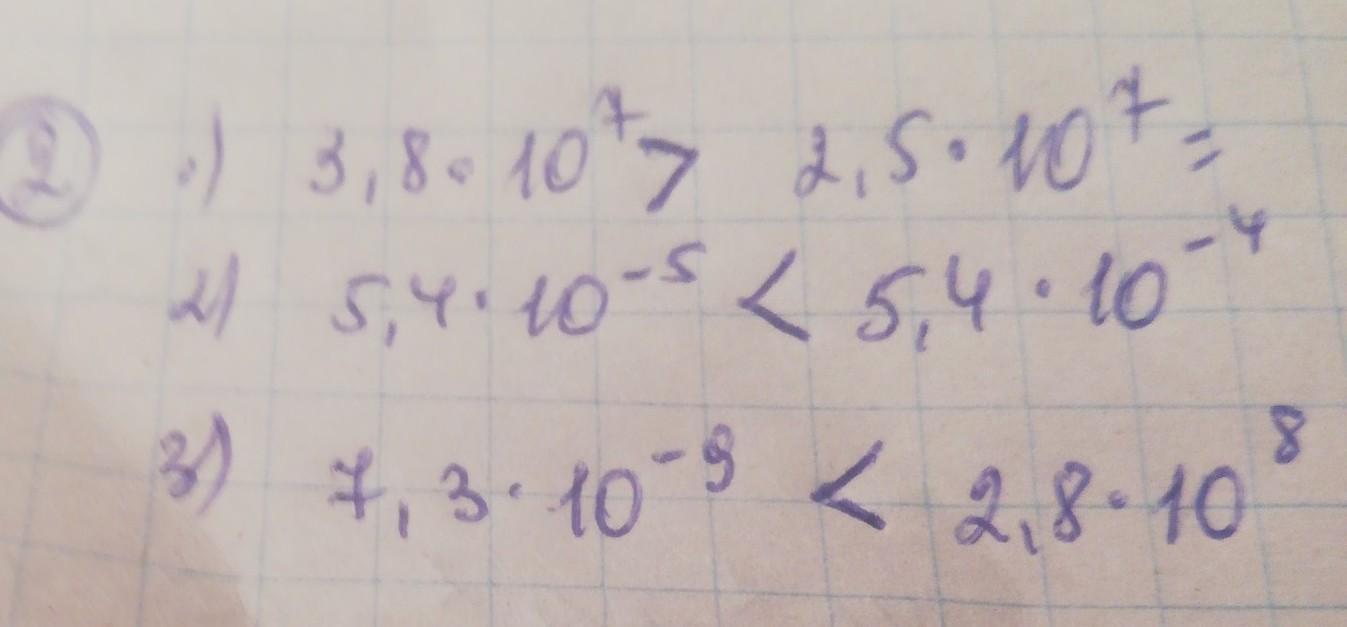 ② 1) 3,8 · 10⁷ > 2,5 · 10⁷ =
2) 5,4 · 10⁻⁵ < 5,4 · 10⁻⁴
3) 7,3 · 10⁻⁹ < 2,8 · 10⁸